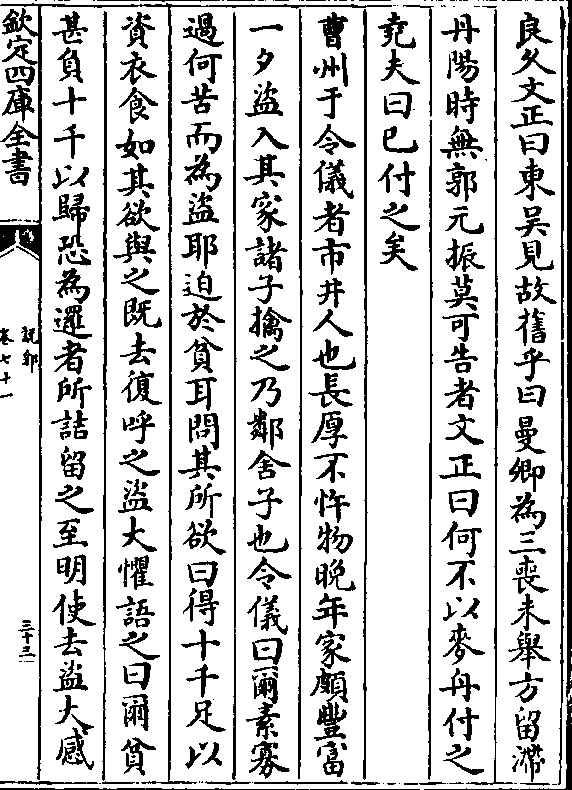 良久文正曰東吳見故舊乎曰曼卿為三喪未舉方留滯
丹陽時無郭元振莫可告者文正曰何不以麥舟付之
堯夫曰已付之矣
曹州于令儀者市井人也長厚不忤物晚年家頗豐富
一夕盜入其家諸子擒之乃鄰舍子也令儀曰爾素寡
過何苦而為盜耶迫於貧耳問其所欲曰得十千足以
資衣食如其欲與之既去復呼之盜大懼語之曰爾貧
甚負十千以歸恐為邏者所詰留之至明使去盜大感
欽定四庫全書
說郛
卷七十一
三十三